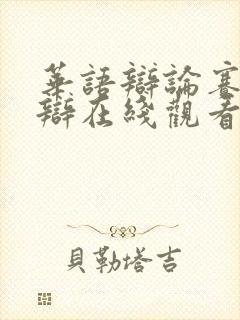 華語辯論賽
辯在綫觀看
貝勒塔吉